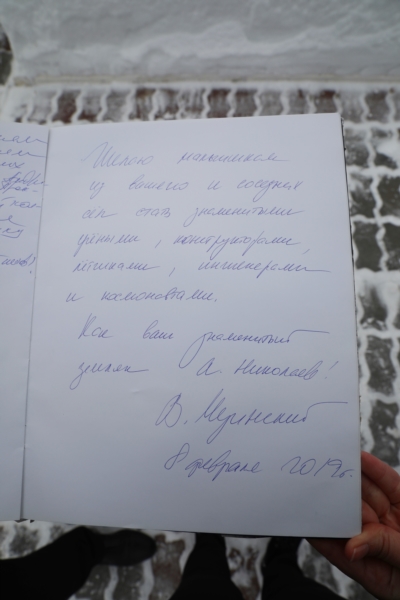 Желаю мальчишкам
из вашего и соседних
сёл стать знаменитыми
учёными, конструкторами,
лётчиками, инженерами
и космонавтами.
Как ваш знаменитый
земляк А. Николаев!
В.
8 февраля 2019г.